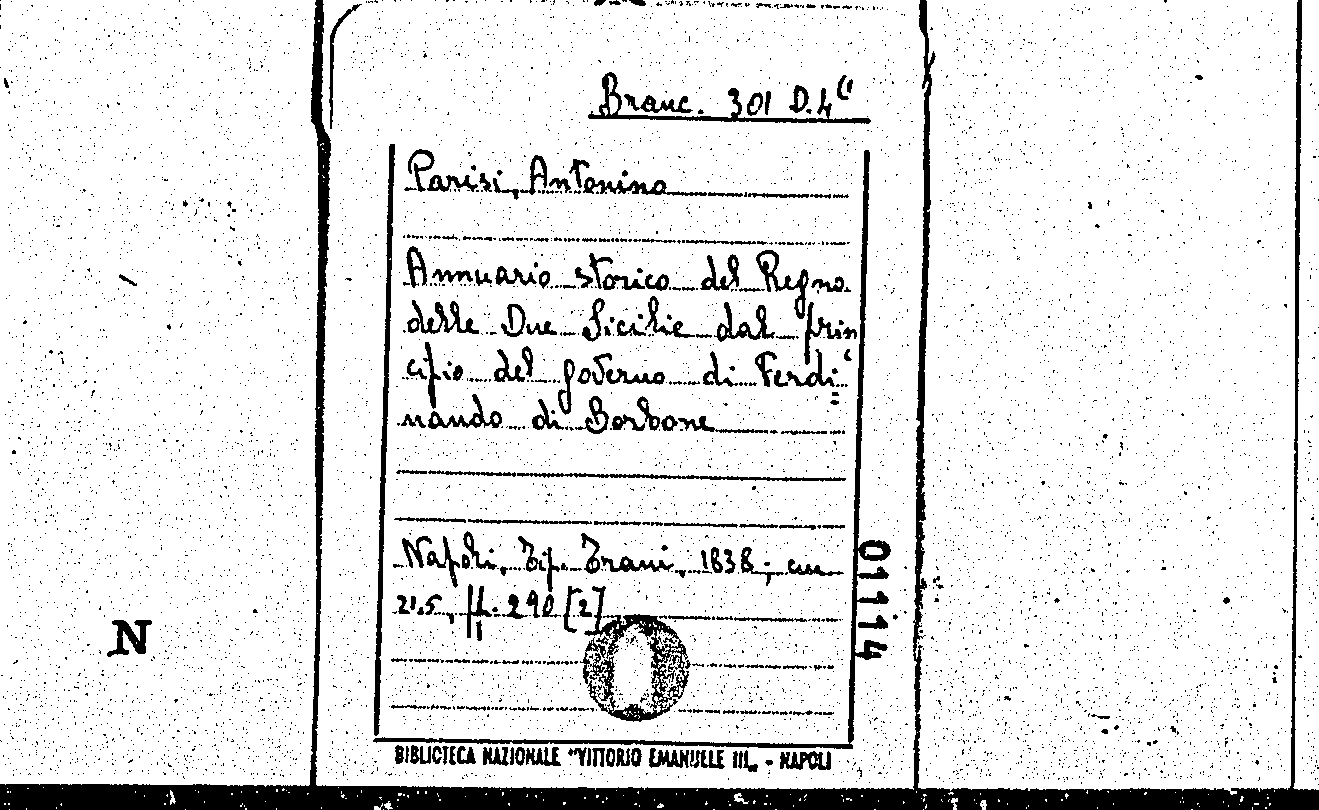 Branc. 301 D.4(1
Parisi, Antonino
Annuario storico del Regno
delle Due Sicilie dal prin
cipio del governo di Ferdi=
nando di Borbone
Napoli, Tip. Trani, 1838; cm
21.5, pp. 290 [2]
01114
N
BIBLIOTECA NAZIONALE "VITTORIO EMANUELE III„ - NAPOLI